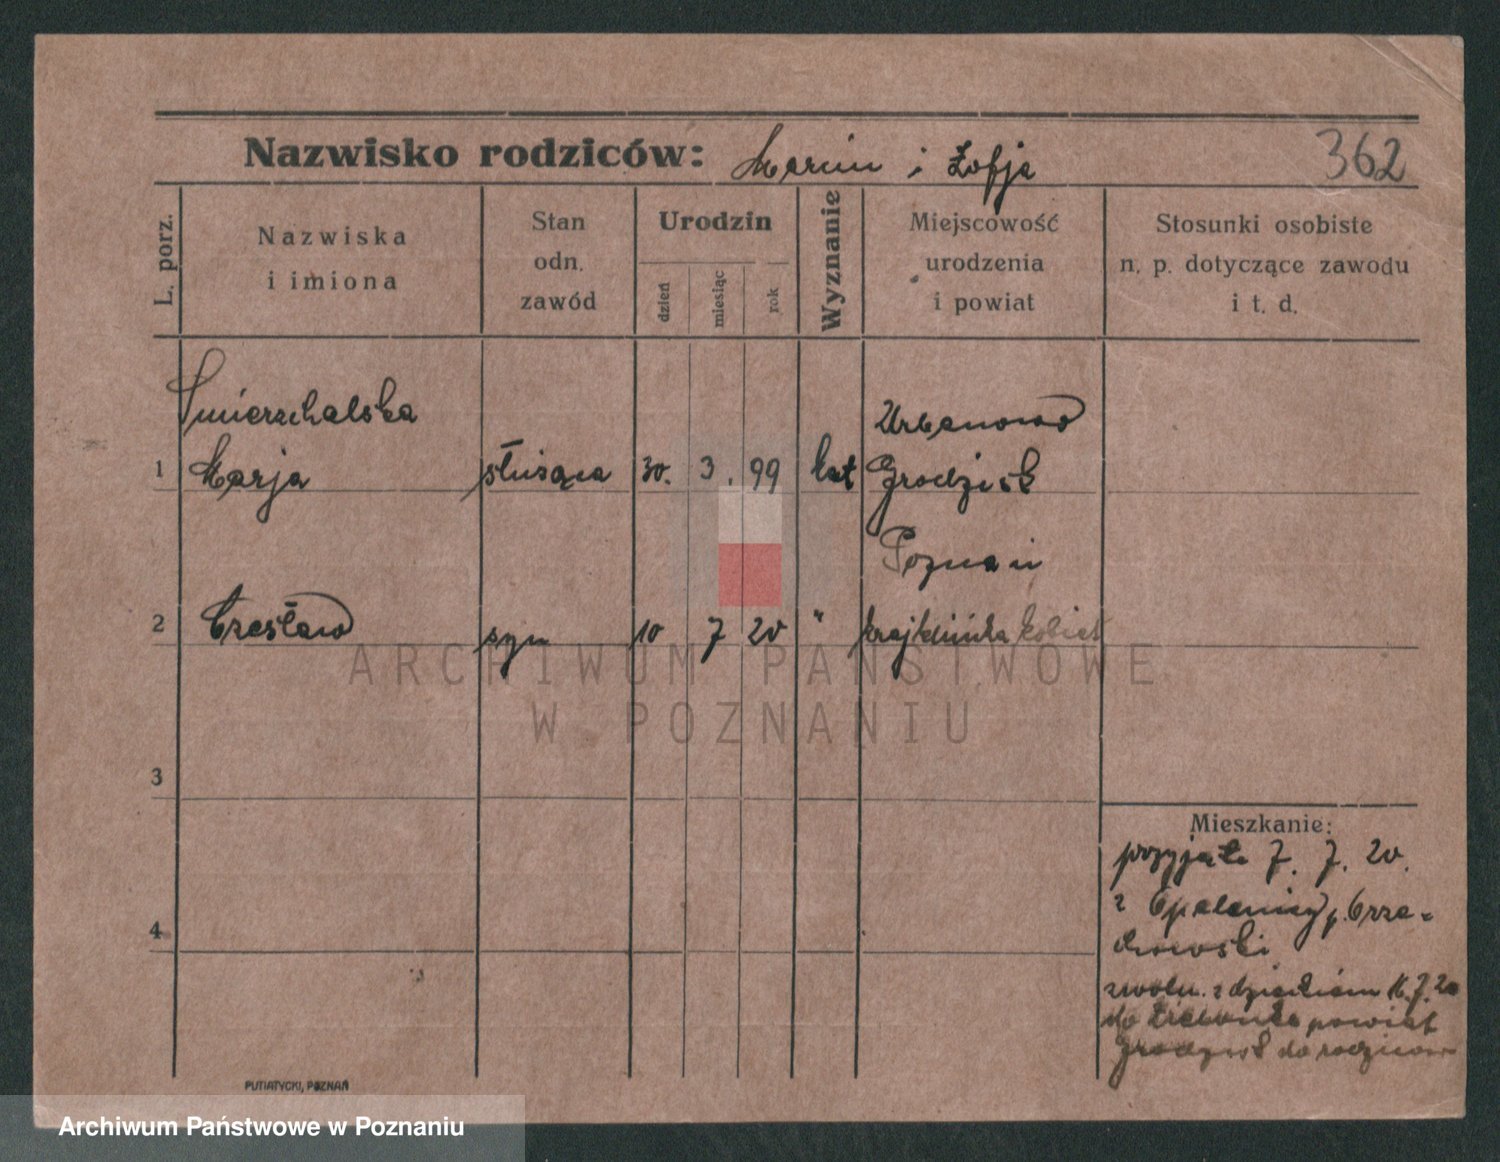 Nazwisko rodziców: Marcin i Zofja 362
L. porz. Nazwiska i imiona
Stan odn. zawód
Urodzin
dzień miesiąc rok
Wyznanie
Miejscowość urodzenia i powiat
Stosunki osobiste n. p. dotyczące zawodu i t. d.
Smierzchalska Urbanowo
1 Marja służąca 30. 3. 99 kat Grodzisk
Poznań
2 Czesław syn 10 7 20 " kobiet
ARCHIWUM PAŃSTWOWE
W POZNANIU
3
Mieszkanie:
przyjęta 7. 7. 20.
z Opalenicy p. Grze-
4
zwoln. z dzieckiem 16.7.20
do powiat
Grodzisk do rodziców
PUTIATYCKI, POZNAŃ
Archiwum Państwowe w Poznaniu